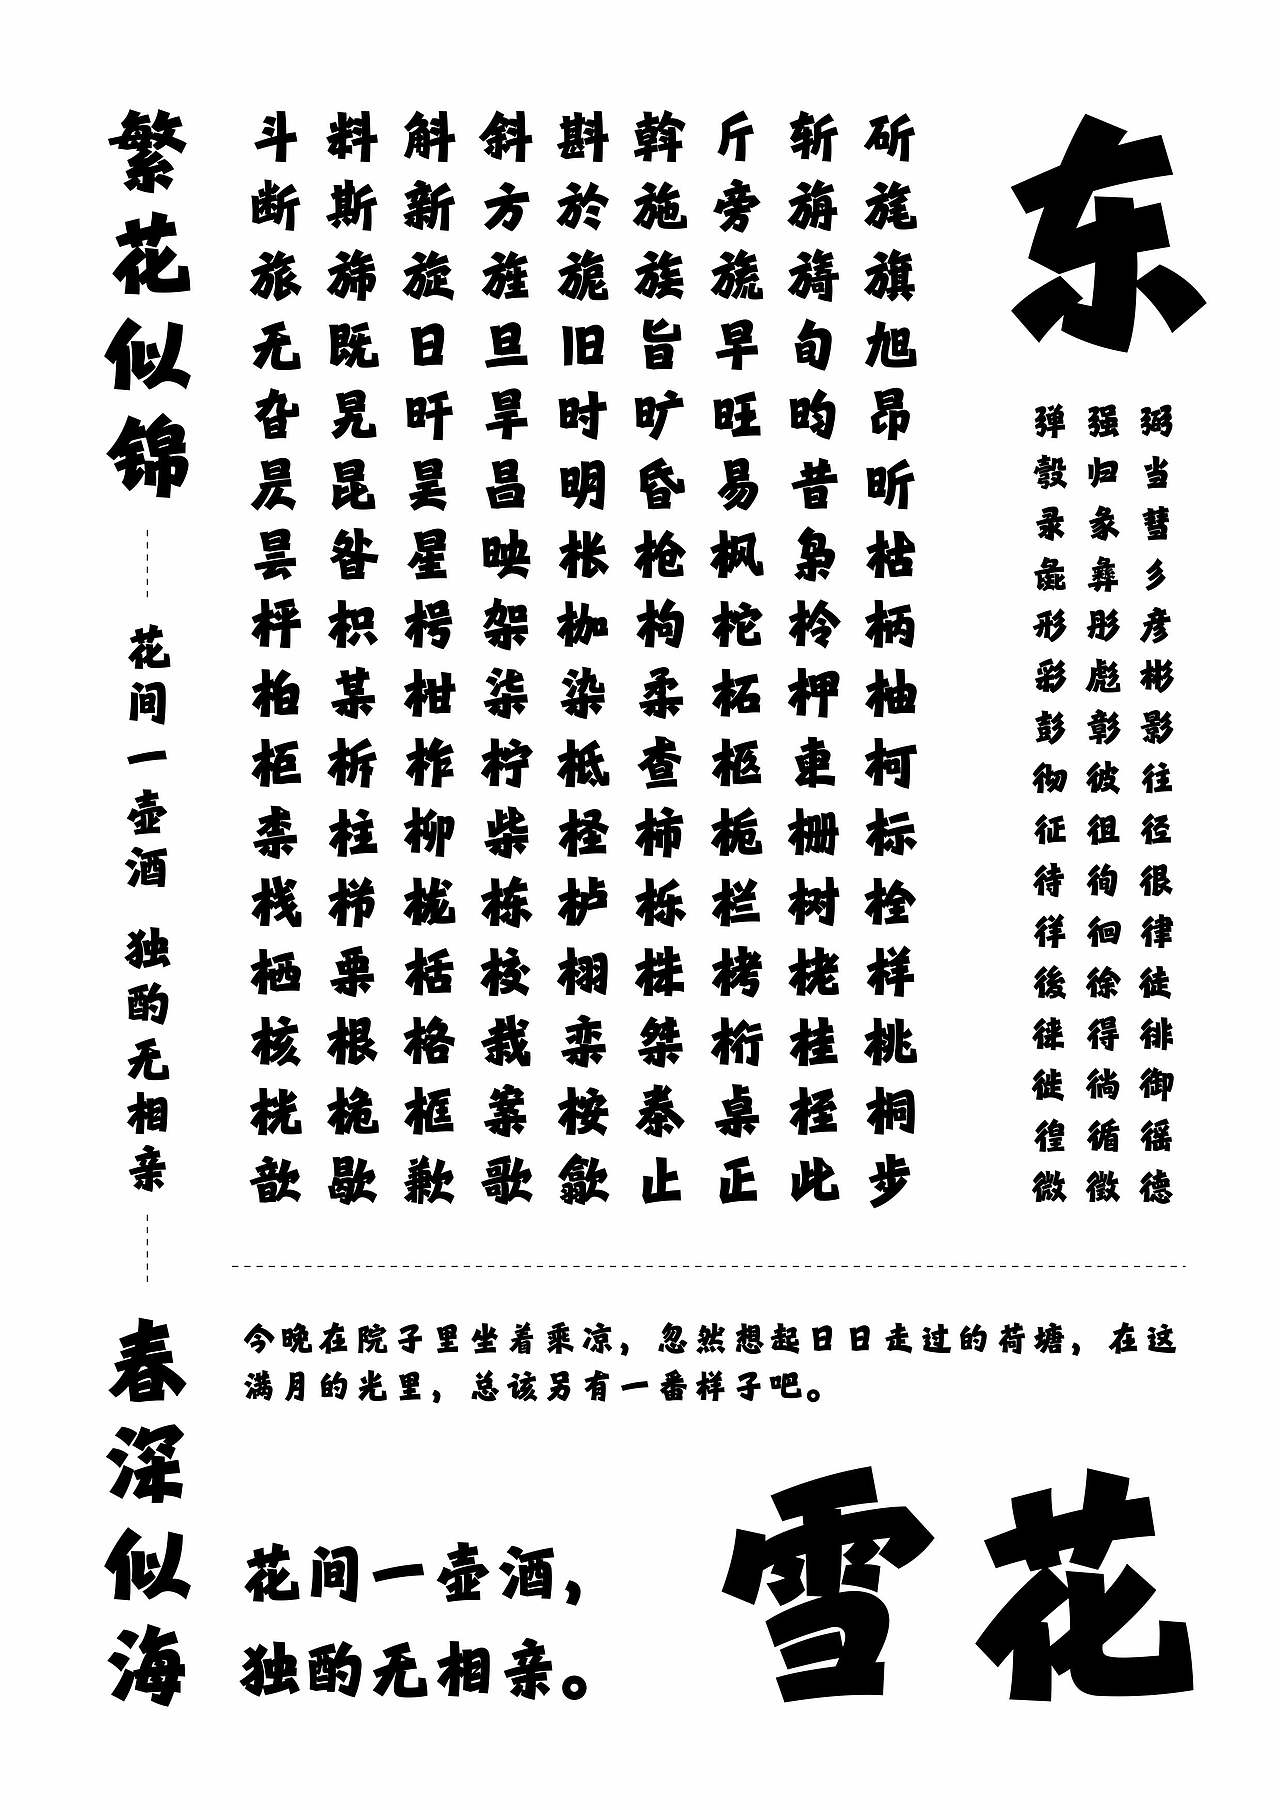 繁花似锦
花间一壶酒 独酌无相亲
春深似海
斗料斛斜斟斡斤斩斫
断斯新方於施旁旃旄
旅旆旋旌旎族旒旖旗
无既日旦旧旨早旬旭
旮旯旰旱时旷旺昀昂
昃昆昊昌明昏易昔昕
昙昝星映枨枪枫枭枯
枰枳枵架枷枸柁柃柄
柏某柑柒染柔柘柙柚
柜柝柞柠柢查柩柬柯
柰柱柳柴柽柿栀栅标
栈栉栊栋栌栎栏树栓
栖栗栝校栩株栲栳样
核根格栽栾桀桁桂桃
桄桅框案桉桊桌桎桐
歆歇歉歌歙止正此步
东
弹强弼
彀归当
录彖彗
彘彝彡
形彤彦
彩彪彬
彭彰影
彻彼往
征徂径
待徇很
徉徊律
後徐徒
徕得徘
徙徜御
徨循徭
微徵德
今晚在院子里坐着乘凉，忽然想起日日走过的荷塘，在这
满月的光里，总该另有一番样子吧。
花间一壶酒，
独酌无相亲。
雪花